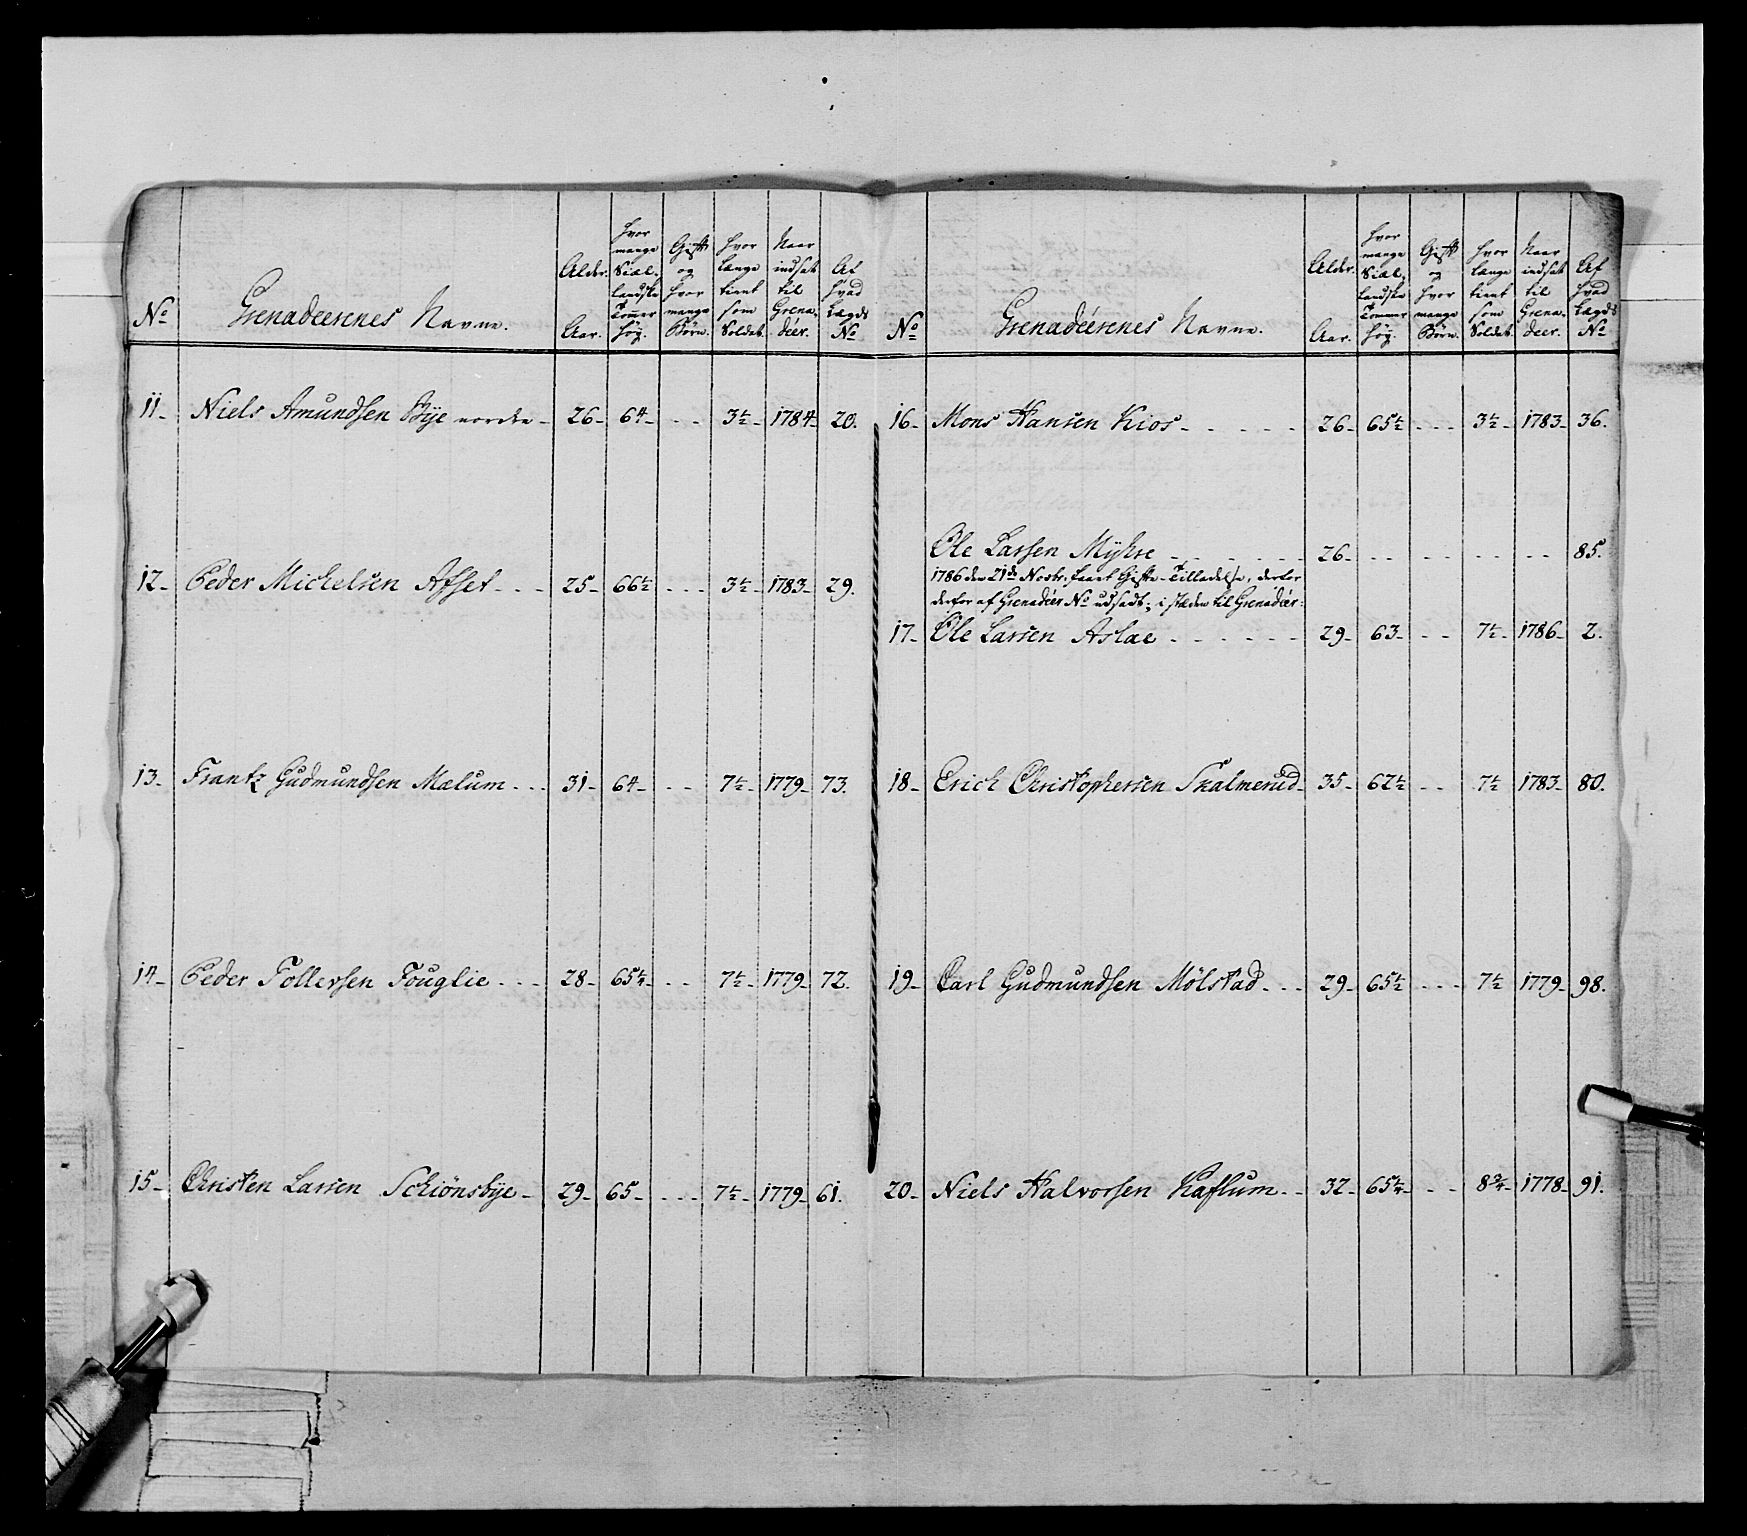 No
Grenadeerenes Navne.
Alder.
Aar.
hvor
mange
Siæl-
landske
Tommer
høy.
Gift
og
hvor
mange
Børn.
hvor
længe
tient
som
Soldat.
Naar
indsat
til
Grena-
deer.
Af
hvad
Lægds
No
11. Niels Amundsen Bÿe nordre - 26 - 64 - - - 3½ - 1784 - 20.
12. Peder Michelsen Afset - - - 25 - 66½ - - - 3½ - 1783 - 29.
13. Frantz Gudmundsen Mælum - - - 31 - 64 - - - 7½ - 1779 - 73.
14. Peder Tollevsen Fouglie - - - 28 - 65¼ - - - 7½ - 1779 - 72.
15. Christen Larsen Schiønsbÿe - 29 - 65 - - - - 7½ - 1779 - 61.
No
Grenadéerenes Navne.
Alder.
Aar.
hvor
mange
Siæl-
landske
Tommer
høy.
Gift
og
hvor
mange
Børn.
hvor
længe
tient
som
Soldat.
Naar
indsat
til
Grena-
deer.
Af
hvad
Lægds
No
16. Mons Hansen Kios - - - - - 26 - 65½ - - - 3½ - 1783 - 36.
Ole Larsen Mÿhre - - - - - - 26 - - - - - - - - 85.
1786 den 21de Novbr. faaet Gifte-Tilladelse, derfor
derfor af Grenadéer No udsadt; i stæden til Grenadéer:
17 - Ole Larsen Aslae - - - - - - 29 - 63 - - - 7½ - 1786 - 2.
18 - Erich Christophersen Skalmerud - 35 - 62½ - - 7½ 1783 - 80.
19 - Carl Gudmundsen Mølstad - - - 29 - 65½ - - - 7½ 1779 - 98.
20 - Niels Halvorsen Kaflum - - 32 - 65¼ - - - 8¾ - 1778 - 91.